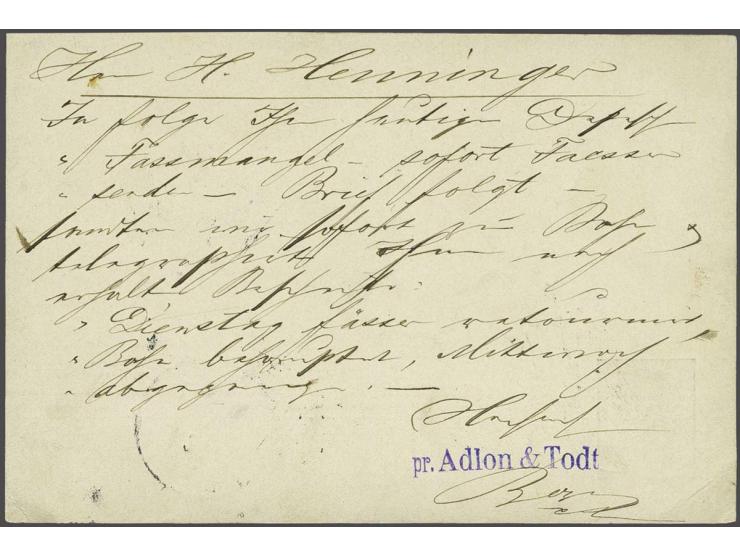 Herrn H. Henninger
In Folge Ihrer heutigen Depesche
" Fassmangel – sofort Faesser
" senden – Brief folgt –
sandten wir sofort zu Bahn &
telegraphirte Ihnen nach
erhalt
" Dienstag fässer retournirt,
" Bahn behauptet, Mittwoch
" abgegangen. —
pr. Adlon & Todt